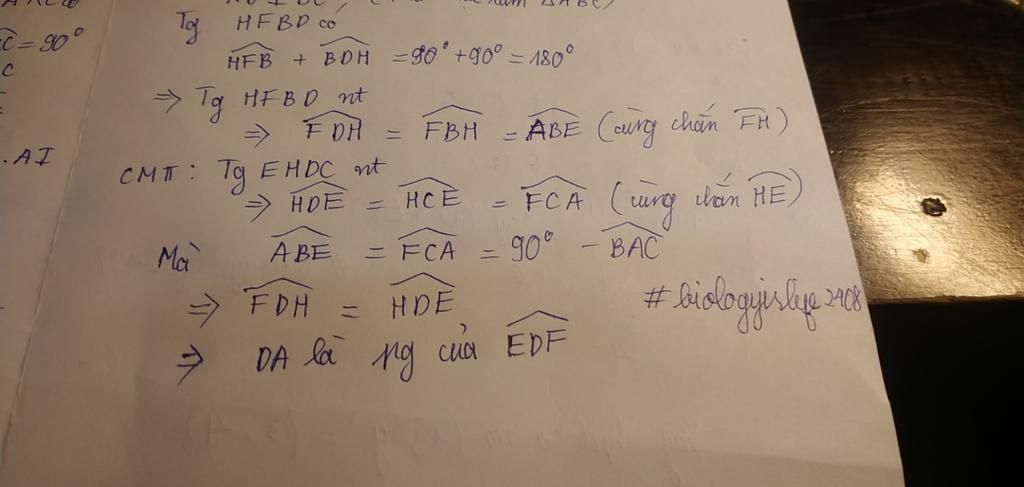 Tg HFBD có
HFB + BDH = 90° + 90° = 180°
⇒ Tg HFBD nt
⇒ FDH = FBH = ABE (cùng chắn FH)
CMTT: Tg EHDC nt
⇒ HDE = HCE = FCA (cùng chắn HE)
Mà ABE = FCA = 90° - BAC
⇒ FDH = HDE
⇒ DA là pg của EDF
#biologyislife2408
= 90°
C
. AI